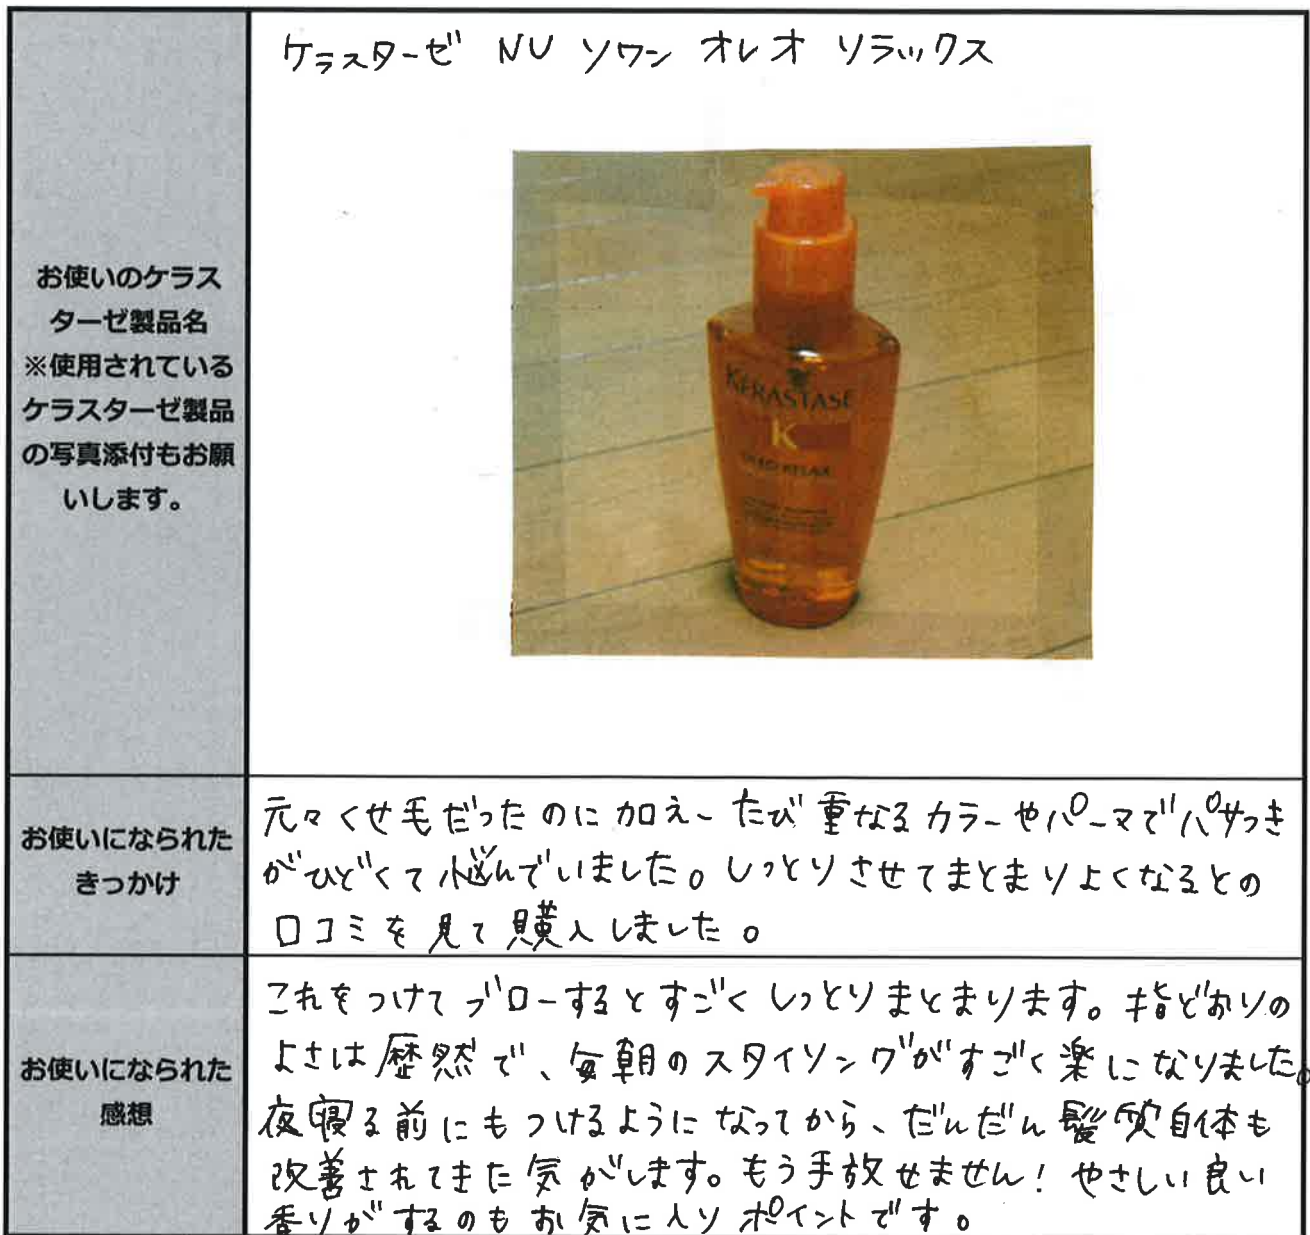 ケラスターゼ NU ソワン オレオ リラックス
お使いのケラス
ターゼ製品名
※使用されている
ケラスターゼ製品
の写真添付もお願
いします。
KERASTASE
K
OLEO RELAX
お使いになられた
きっかけ
元々くせ毛だったのに加え、たび重なるカラーやパーマでパサつき
がひどくて悩んでいました。しっとりさせてまとまりよくなるとの
口コミを見て購入しました。
お使いになられた
感想
これをつけてブローするとすごくしっとりまとまります。指どおりの
よさは歴然で、毎朝のスタイリングがすごく楽になりました。
夜寝る前にもつけるようになってから、だんだん髪質自体も
改善されてきた気がします。もう手放せません！やさしい良い
香りがするのもお気に入りポイントです。